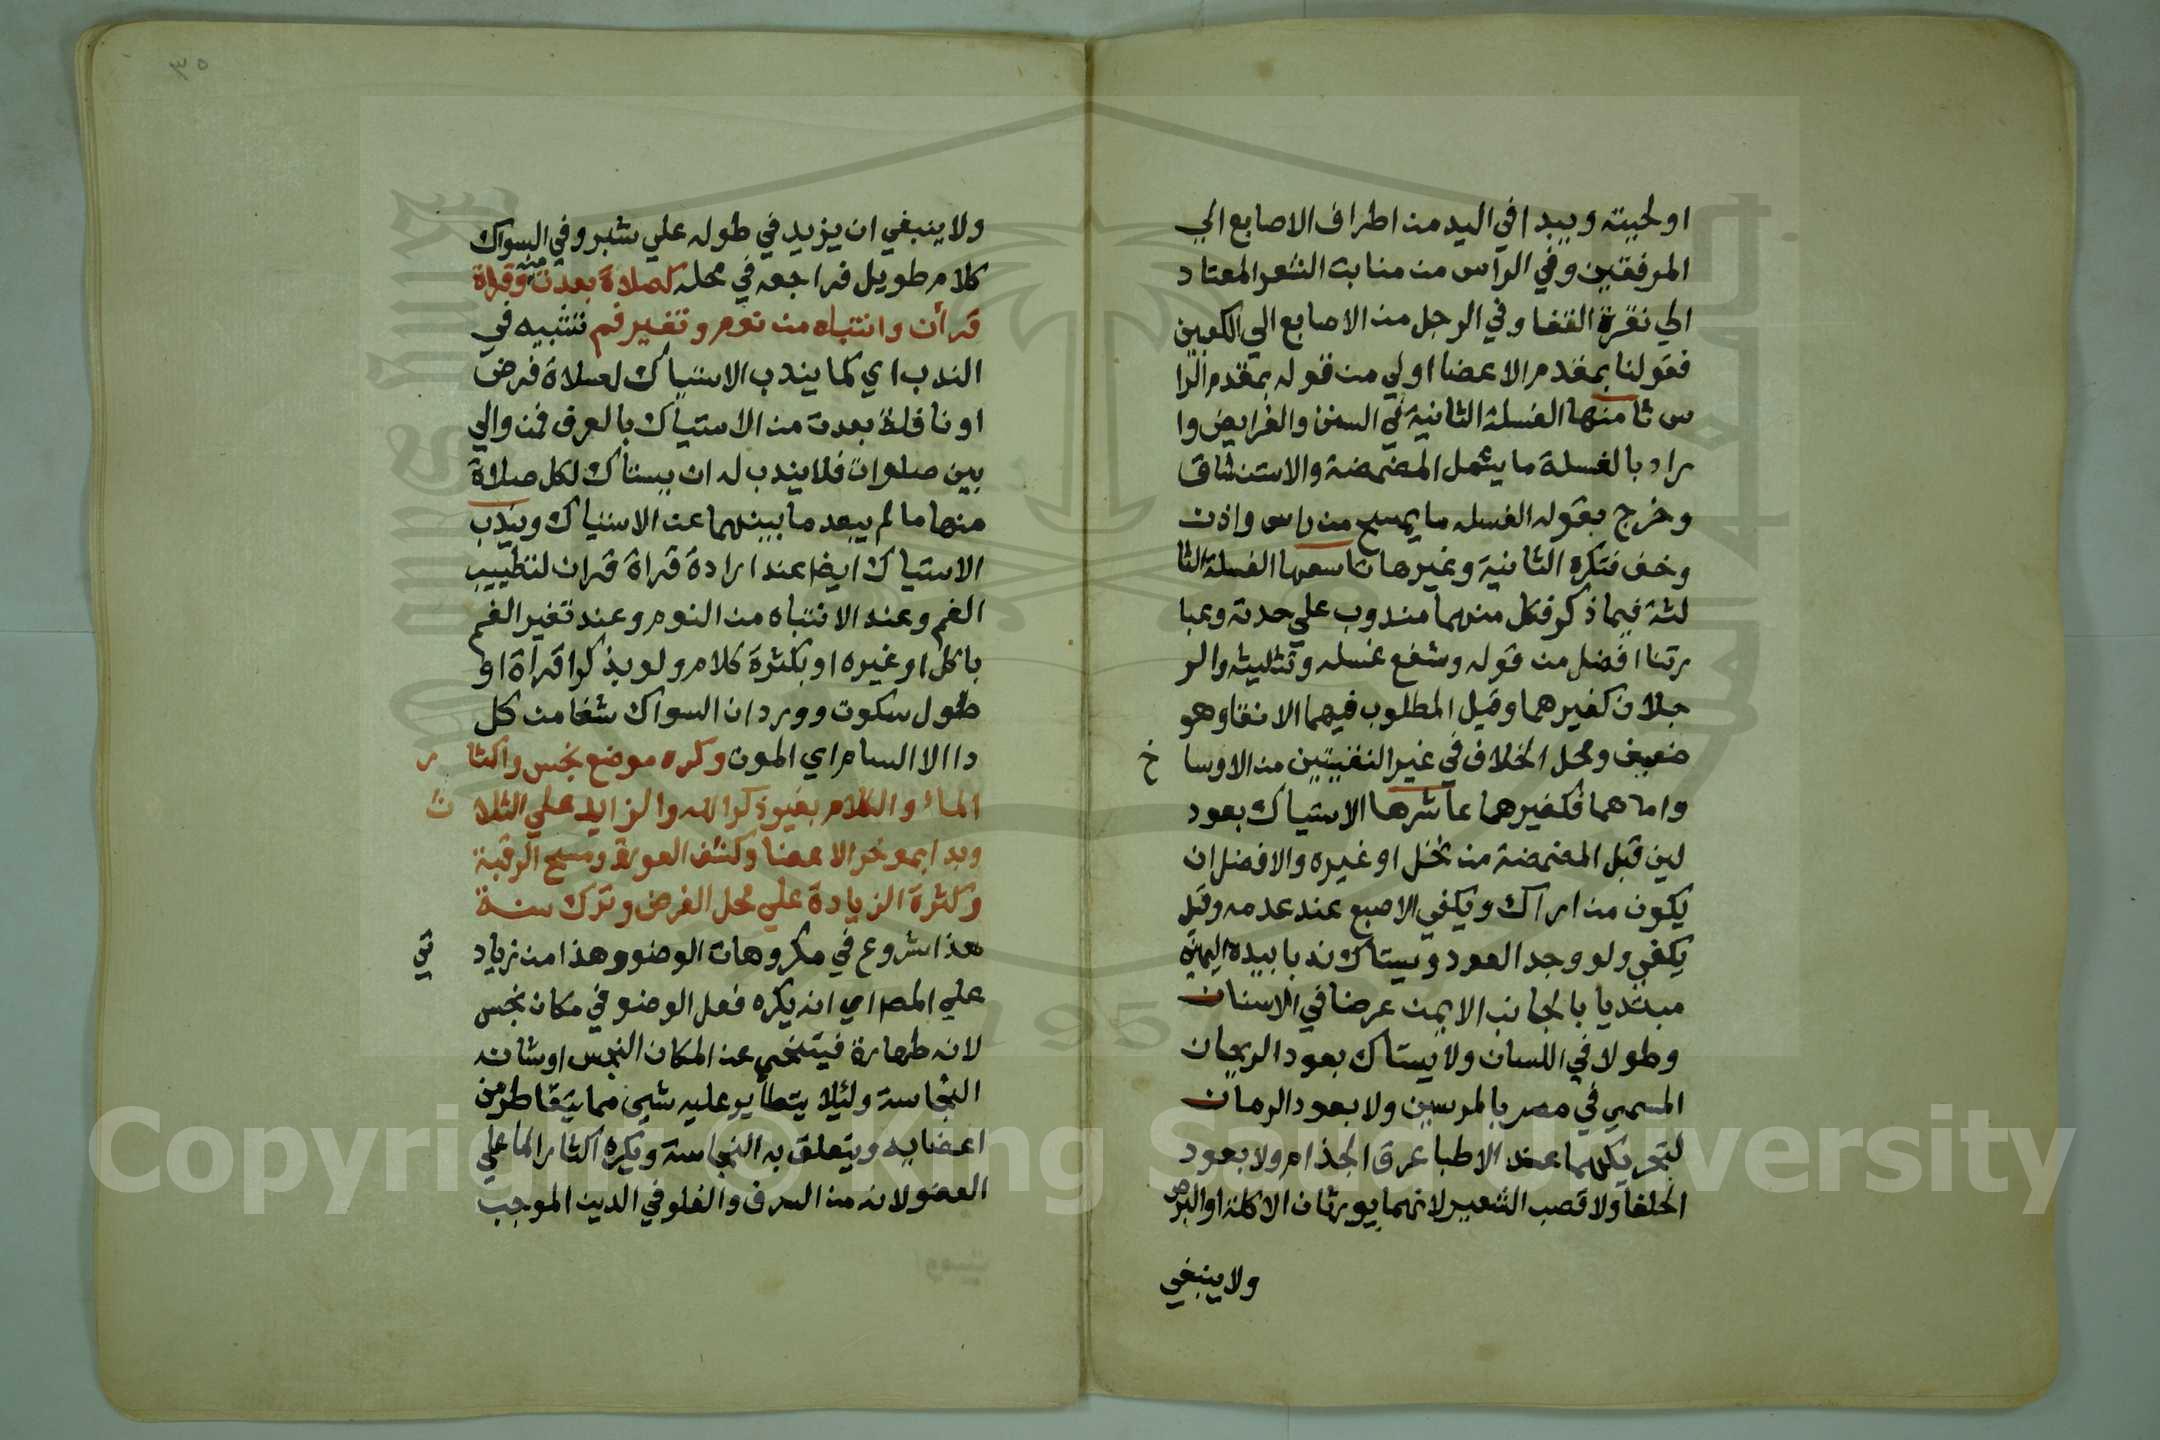 او لحيته ويبدا في اليد من اطراف الاصابع الي
المرفقين وفي الرأس من منابت الشعر المعتاد
الي نقرة القفا وفي الرجل من الاصابع الي الكعبين
فقولنا بمقدم الاعضا اولي من قوله بمقدم الرا
س ثامنها الغسلة الثانية في السنن والفرايض وا
راد بالغسلة ما يشمل المضمضة والاستنشاق
وخرج بقوله الغسله ما يمسح من راس واذن
وخف فتكره الثانية وغيرها تاسعها الغسلة الثا
لثة فيما ذكر فكل منهما مندوب علي حدته وعبا
رتنا افضل من قوله وشفع غسله وتثليثه والر
جلان كغيرهما وقيل المطلوب فيهما الانقا وهو
ضعيف ومحل الخلاف في غير النقيتين من الاوسا خ
واما هما فكغيرهما عاشرها الاستياك بعود
لين قبل المضمضة من نخل او غيره والافضل ان
يكون من اراك ويكفي الاصبع عند عدمه وقيل
يكفي ولو وجد العود ويستاك ندبا بيده اليمني
مبتديا بالجانب الايمن عرضا في الاسنان
وطولا في اللسان ولا يستاك بعود الريحان
المسمي في مصر بالمرسين ولا بعود الرمان
لتحريكهما عند الاطبا عرق الجذام ولا بعود
الحلفا ولا قصب الشعير لانهما يورثان الاكلة او البرص
ولا ينبغي
٣٥
ولا ينبغي ان يزيد في طوله علي شبر وفي السواك
كلام طويل فراجعه في محله كصلاة بعدت منه وقراة
قرأن وانتباه من نوم وتغير فم تشبيه في
الندب اي كما يندب الاستياك لصلاة فرض
او نافلة بعدت من الاستياك بالعرف فمن والي
بين صلوات فلا يندب له ان يستاك لكل صلاة
منها ما لم يبعد ما بينهما عن الاستياك ويندب
الاستياك ايضا عند ارادة قراة قران لتطييب
الفم وعند الانتباه من النوم وعند تغير الفم
باكل او غيره او بكثرة كلام ولو بذكر او قرأة او
طول سكوت وورد ان السواك شفا من كل
دا الا السام اي الموت وكره موضع نجس واكثا ر
الماء والكلام بغير ذكر الله والزايد علي الثلا ث
وبدا بموخر الاعضا وكشف العورة ومسح الرقبة
وكثرة الزيادة علي محل الفرض وترك سنة
هذا شروع في مكروهات الوضوء وهذا من زياد تي
علي المص اي انه يكره فعل الوضو في مكان نجس
لانه طهارة فيتنحي عن المكان النجس او شانه
النجاسة ولئلا يتطاير عليه شي مما يتقاطر من
اعضايه ويتعلق به النجاسة ويكره اكثار الما علي
العضو لانه من السرف والغلو في الدين الموجب
Copyright © King Saud University
1957